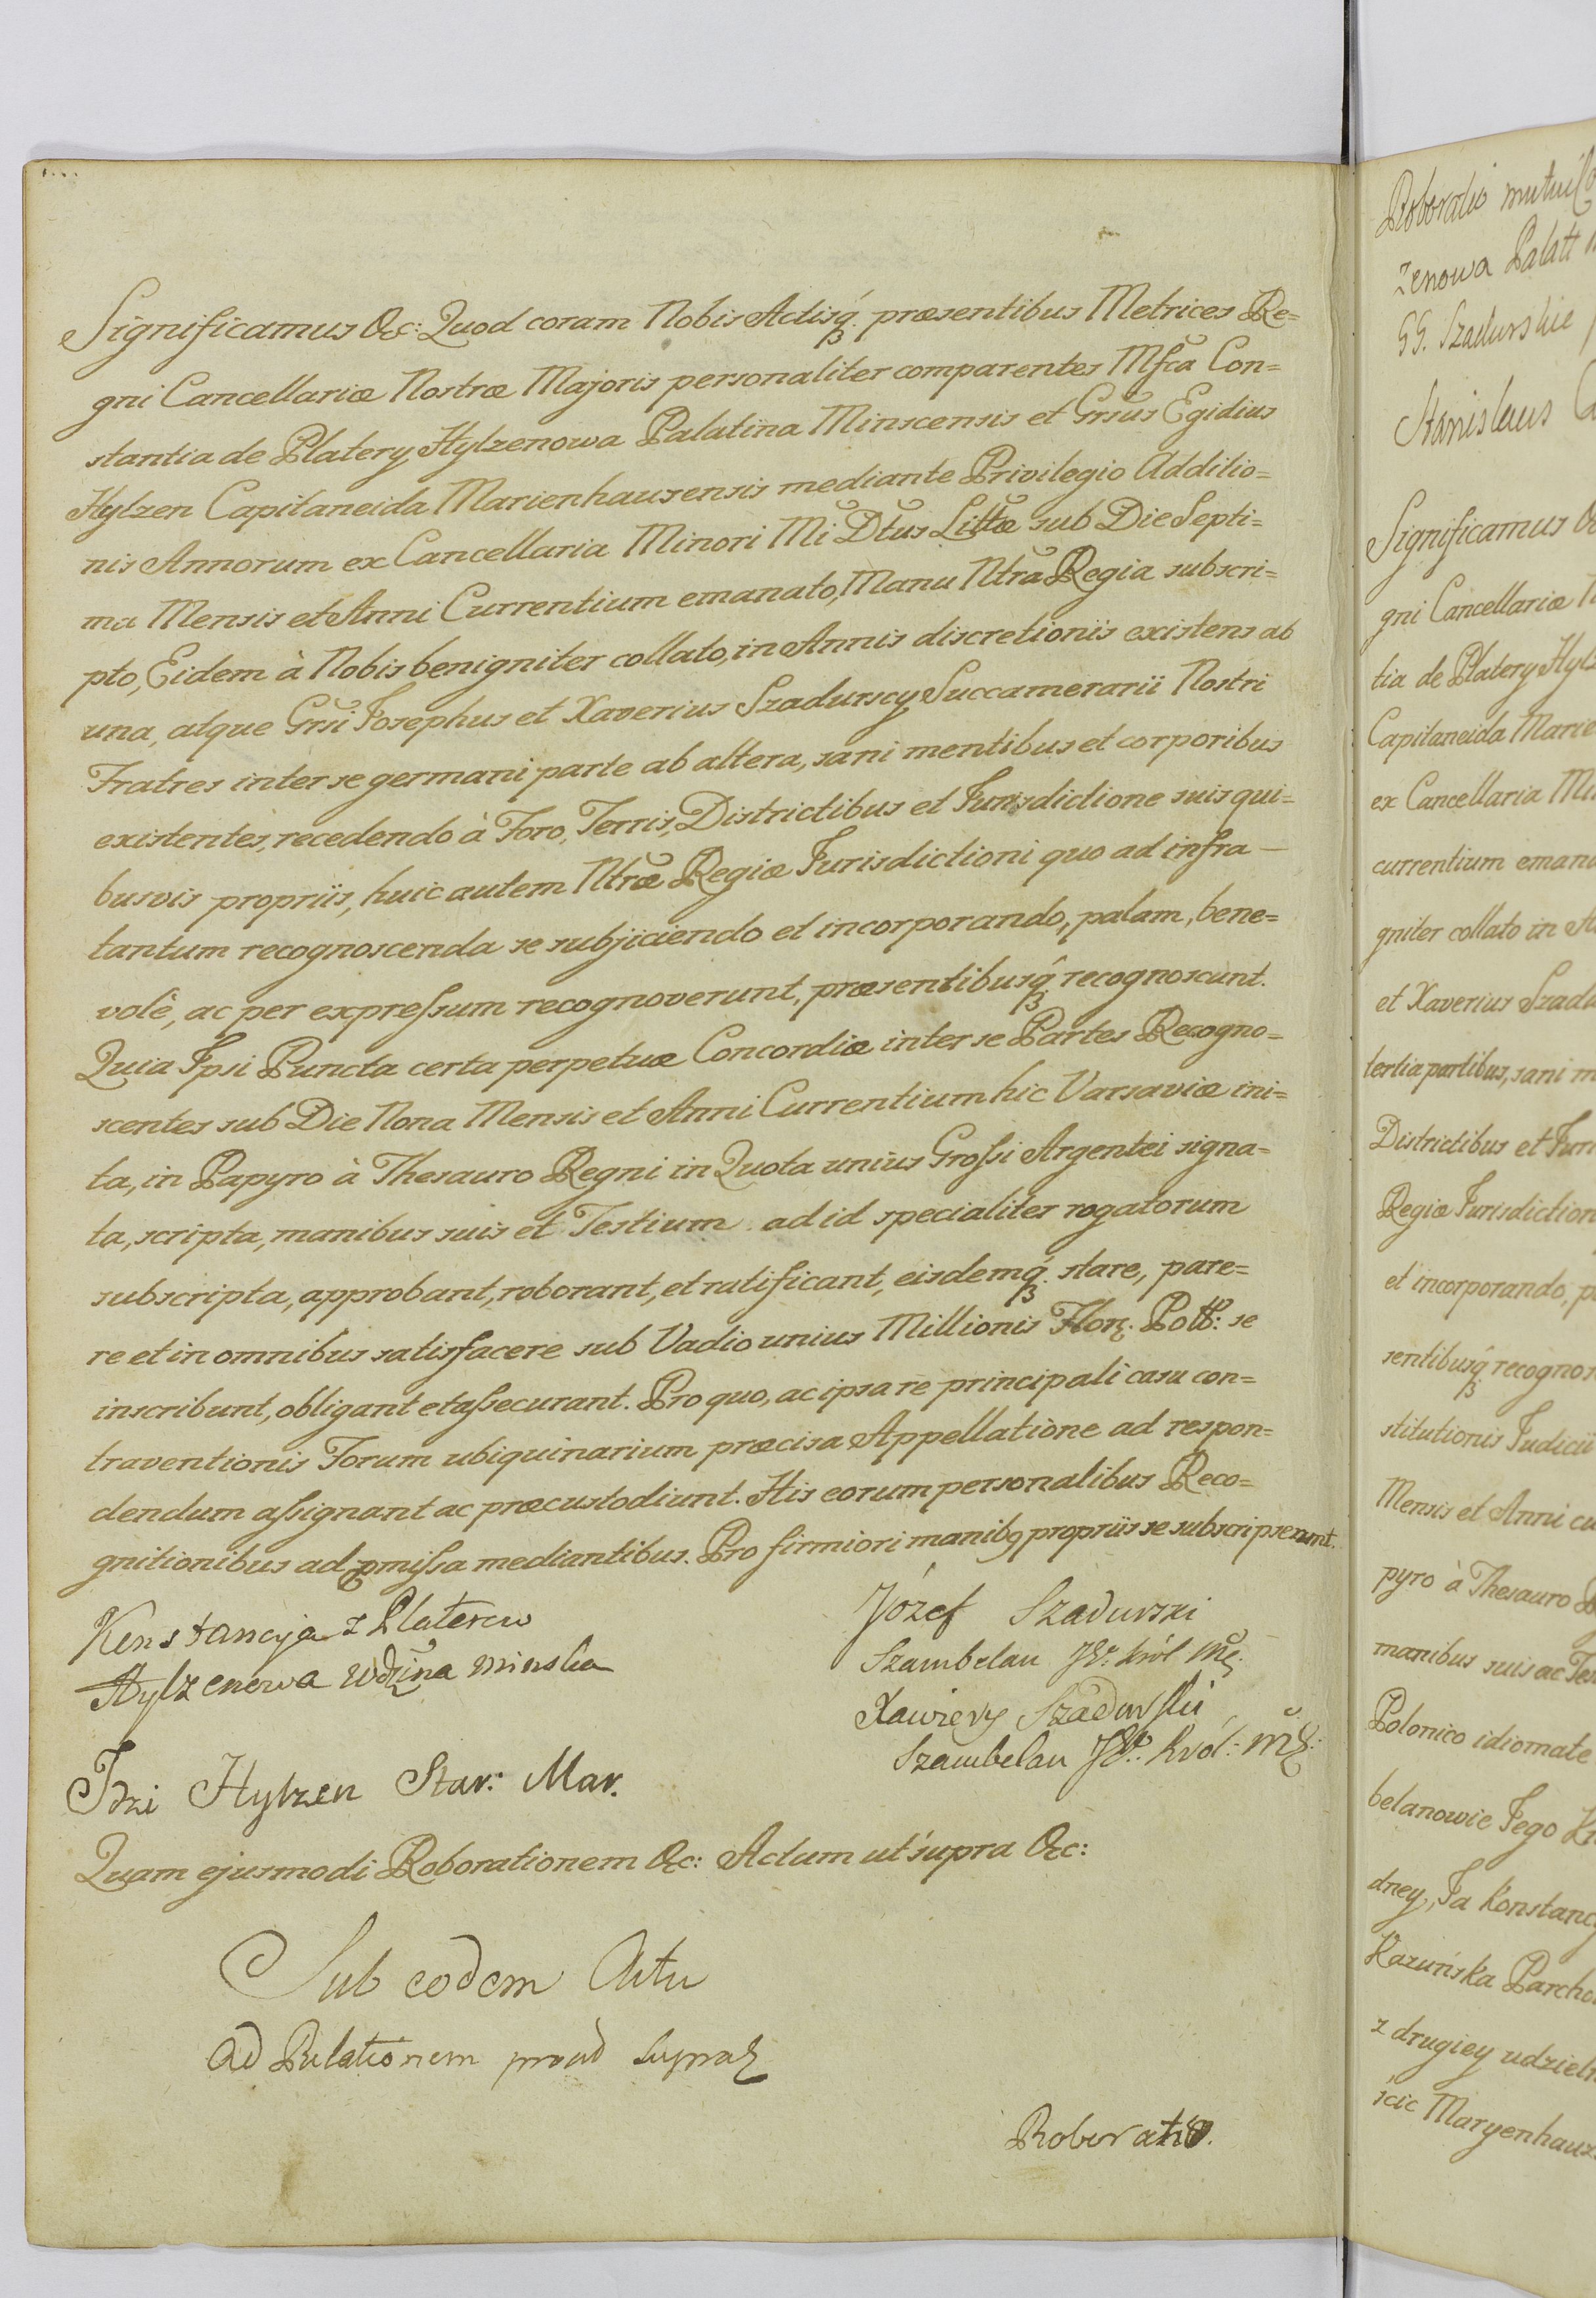 Significamus &c: Quod coram Nobis Actisq́ꝫ præsentibus Metrices Re=
gni Cancellariæ Nostræ Majoris personaliter comparentes Mfca Con=
stantia de Platery Hylzenowa Palatina Minscensis et Grsus Egidius
Hylzen Capitaneida Marienhausensis mediante Privilegio Additio=
nis Annorum ex Cancellaria Minori Mi Dtus Littæ sub Die Septi=
ma Mensis et Anni Currentium emanato, Manu Ntra Regia subscri=
pto, Eidem à Nobis benigniter collato, in Annis discretionis existens ab
una, atque Grsi Josephus et Xaverius Szadurscy Succamerarii Nostri
Fratres inter se germani parte ab altera, sani mentibus et corporibus
existentes, recedendo à Foro, Terris, Districtibus et Jurisdictione suis qui=
busvis propriis, huic autem Ntræ Regiæ Jurisdictioni quo ad infra—
tantum recognoscenda se subjiciendo et incorporando, palam, bene=
volè, ac per expreſsum recognoverunt, præsentibusq́ꝫ recognoscunt.
Quia Ipsi Puncta certa perpetuæ Concordiæ inter se Partes Recogno=
scentes sub Die Nona Mensis et Anni Currentium hic Varsaviæ ini=
ta, in Papyro à Thesauro Regni in Quota unius Groſsi Argentei signa=
ta, scripta, manibus suis et Testium ad id specialiter rogatorum
subscripta, approbant, roborant, et ratificant, eisdemq́ꝫ stare, pare=
re et in omnibus satisfacere sub Vadio unius Millionis Flor. Poll: se
inscribunt, obligant et aſsecurant. Pro quo, ac ipsa re principali casu con=
traventionis Forum ubiquinarium præcisa Appellatione ad respon=
dendum aſsignant ac præcustodiunt. His eorum personalibus Reco=
gnitionibus ad p̄miſsa mediantibus. Pro firmiori manibꝯ propriis se subscripserunt.
Konstancyja z Platerow
Hylzenowa wdzina minska
Józef Szadurski
Szambelan JK: Król Mci.
Xawiery Szadurski
Szambelan JK: Król: Mci:
Idzi Hylzen Star: Mar.
Quam ejusmodi Roborationem &c: Actum ut supra &c:
Sub eodem Actu
ad Relationem prout supra
Roboratio.
Roboratio mutui
zenowa Palatt
GG. Szadurskie
Stanislaus
Significamus &
gni Cancellariæ
tia de Platery Hylz
Capitaneida Marie
ex Cancellaria Mi
currentium emana
gniter collato in
et Xaverius Szadu
tertia partibus, sani m
Districtibus et Juri
Regiæ Jurisdiction
et incorporando, p
sentibusq́ꝫ recognos
stitutionis Judicii
Mensis et Anni cu
pyro à Thesauro
manibus suis ac Tes
Polonico idiomate
belanowie Jego
dney, Ja Konstancy
Kazuńska Parcho
z drugiey udzieln
ścic Maryenhauz